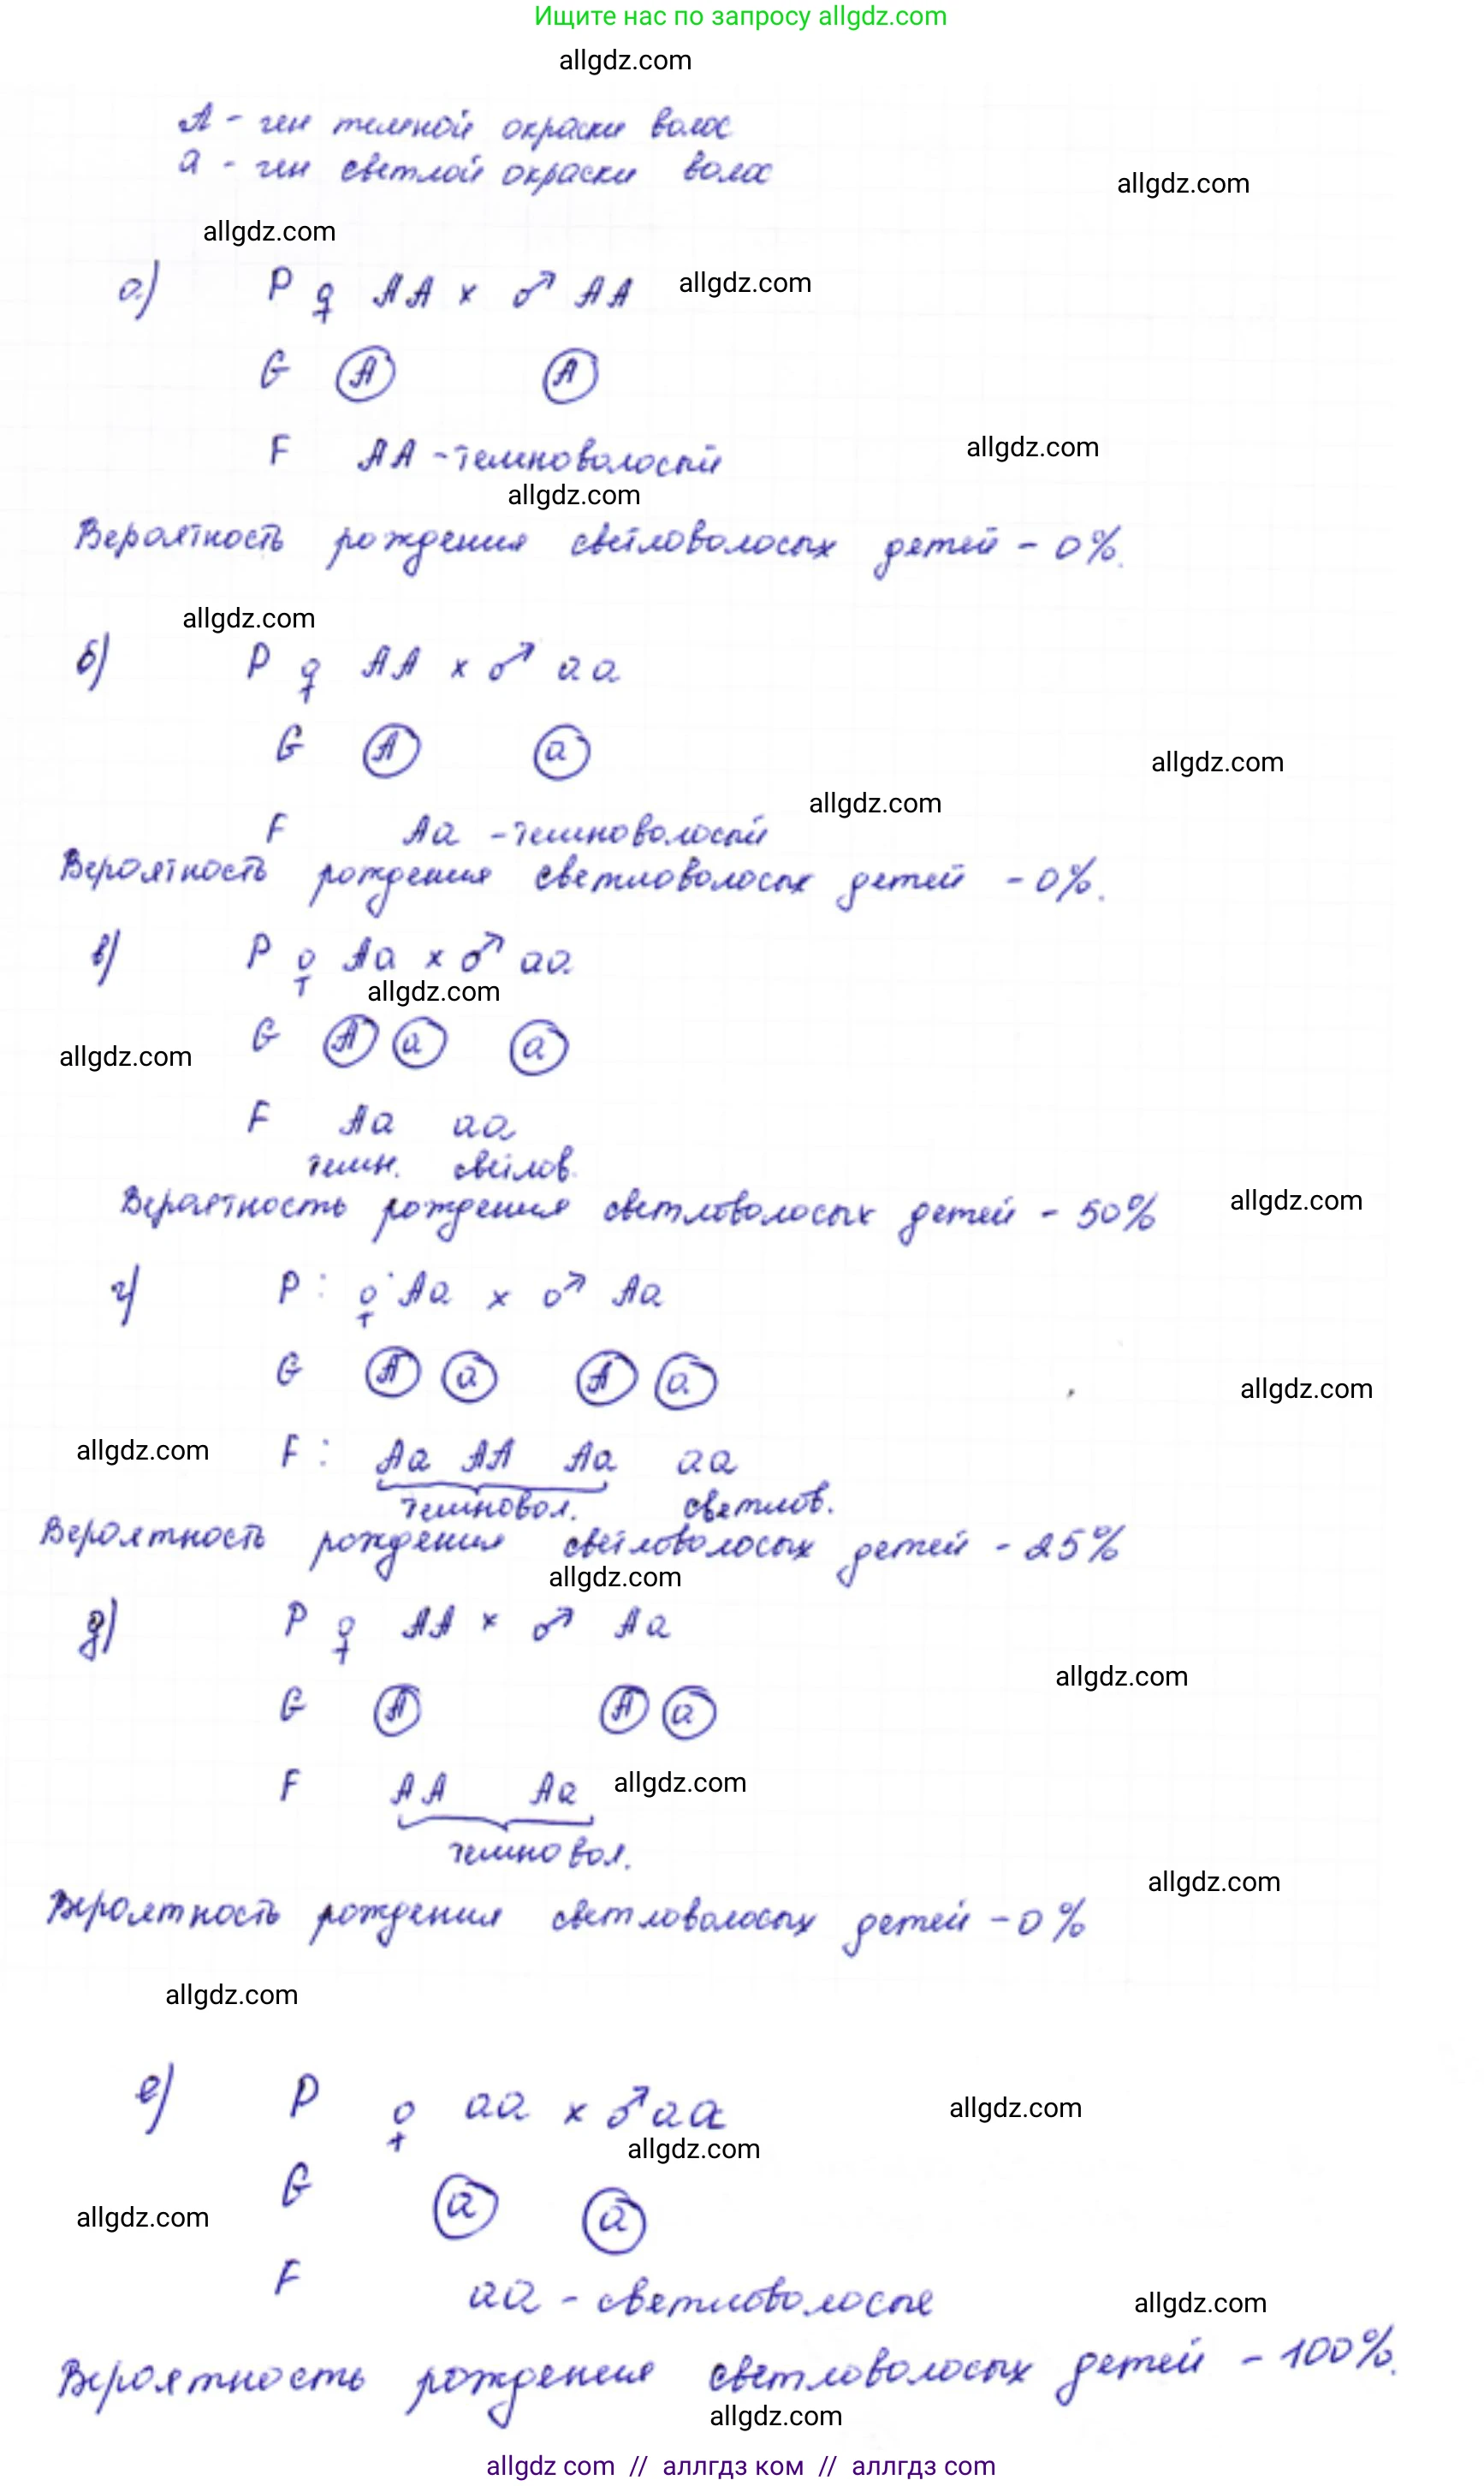 Ищите нас по запросу allgdz.com
allgdz.com
A - ген темной окраски волос
a - ген светлой окраски волос
allgdz.com
allgdz.com
а) P ♀ AA × ♂ AA
allgdz.com
G (A) (A)
F AA - темноволосый
allgdz.com
allgdz.com
Вероятность рождения светловолосых детей - 0%.
allgdz.com
б) P ♀ AA × ♂ aa
G (A) (a)
allgdz.com
allgdz.com
F Aa - темноволосый
Вероятность рождения светловолосых детей - 0%.
в) P ♀ Aa × ♂ aa
allgdz.com
G (A) (a) (a)
allgdz.com
F Aa aa
темн. светлов.
Вероятность рождения светловолосых детей - 50%
allgdz.com
г) P : ♀ Aa × ♂ Aa
G (A) (a) (A) (a)
allgdz.com
allgdz.com
F : Aa AA Aa aa
темновол. светлов.
Вероятность рождения светловолосых детей - 25%
allgdz.com
д) P ♀ AA × ♂ Aa
allgdz.com
G (A) (A) (a)
F AA Aa
allgdz.com
темновол.
allgdz.com
Вероятность рождения светловолосых детей - 0%
allgdz.com
е) P ♀ aa × ♂ aa
allgdz.com
allgdz.com
G (a) (a)
allgdz.com
F aa - светловолосые
allgdz.com
Вероятность рождения светловолосых детей - 100%.
allgdz.com
allgdz com // аллгдз ком // аллгдз com